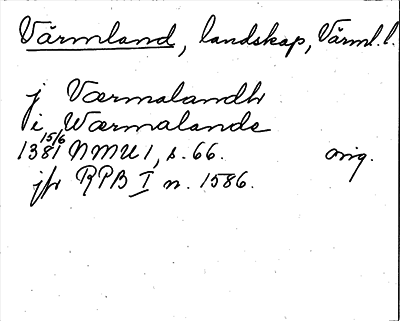 Värmland, landskap, Värml. l.
j Wærmalandh
i Wærmalande
15/6
1381 NMU 1, s. 66. orig.
jfr RPB I n. 1586.